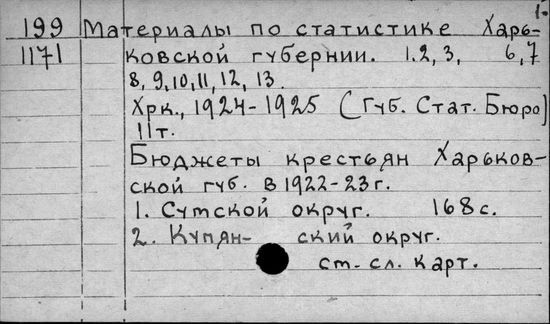 1.
199 Материалы по статистике Харь-
1171 ковской губернии. 1.2, 3, 6,7
8, 9, 10, 11, 12, 13.
Хрк., 1924-1925 (Губ. Стат. Бюро)
11т.
Бюджеты крестьян Харьков-
ской губ. в 1922-23 г.
1. Сумской округ. 168 с.
2. Купян- ский округ.
см. сл. карт.